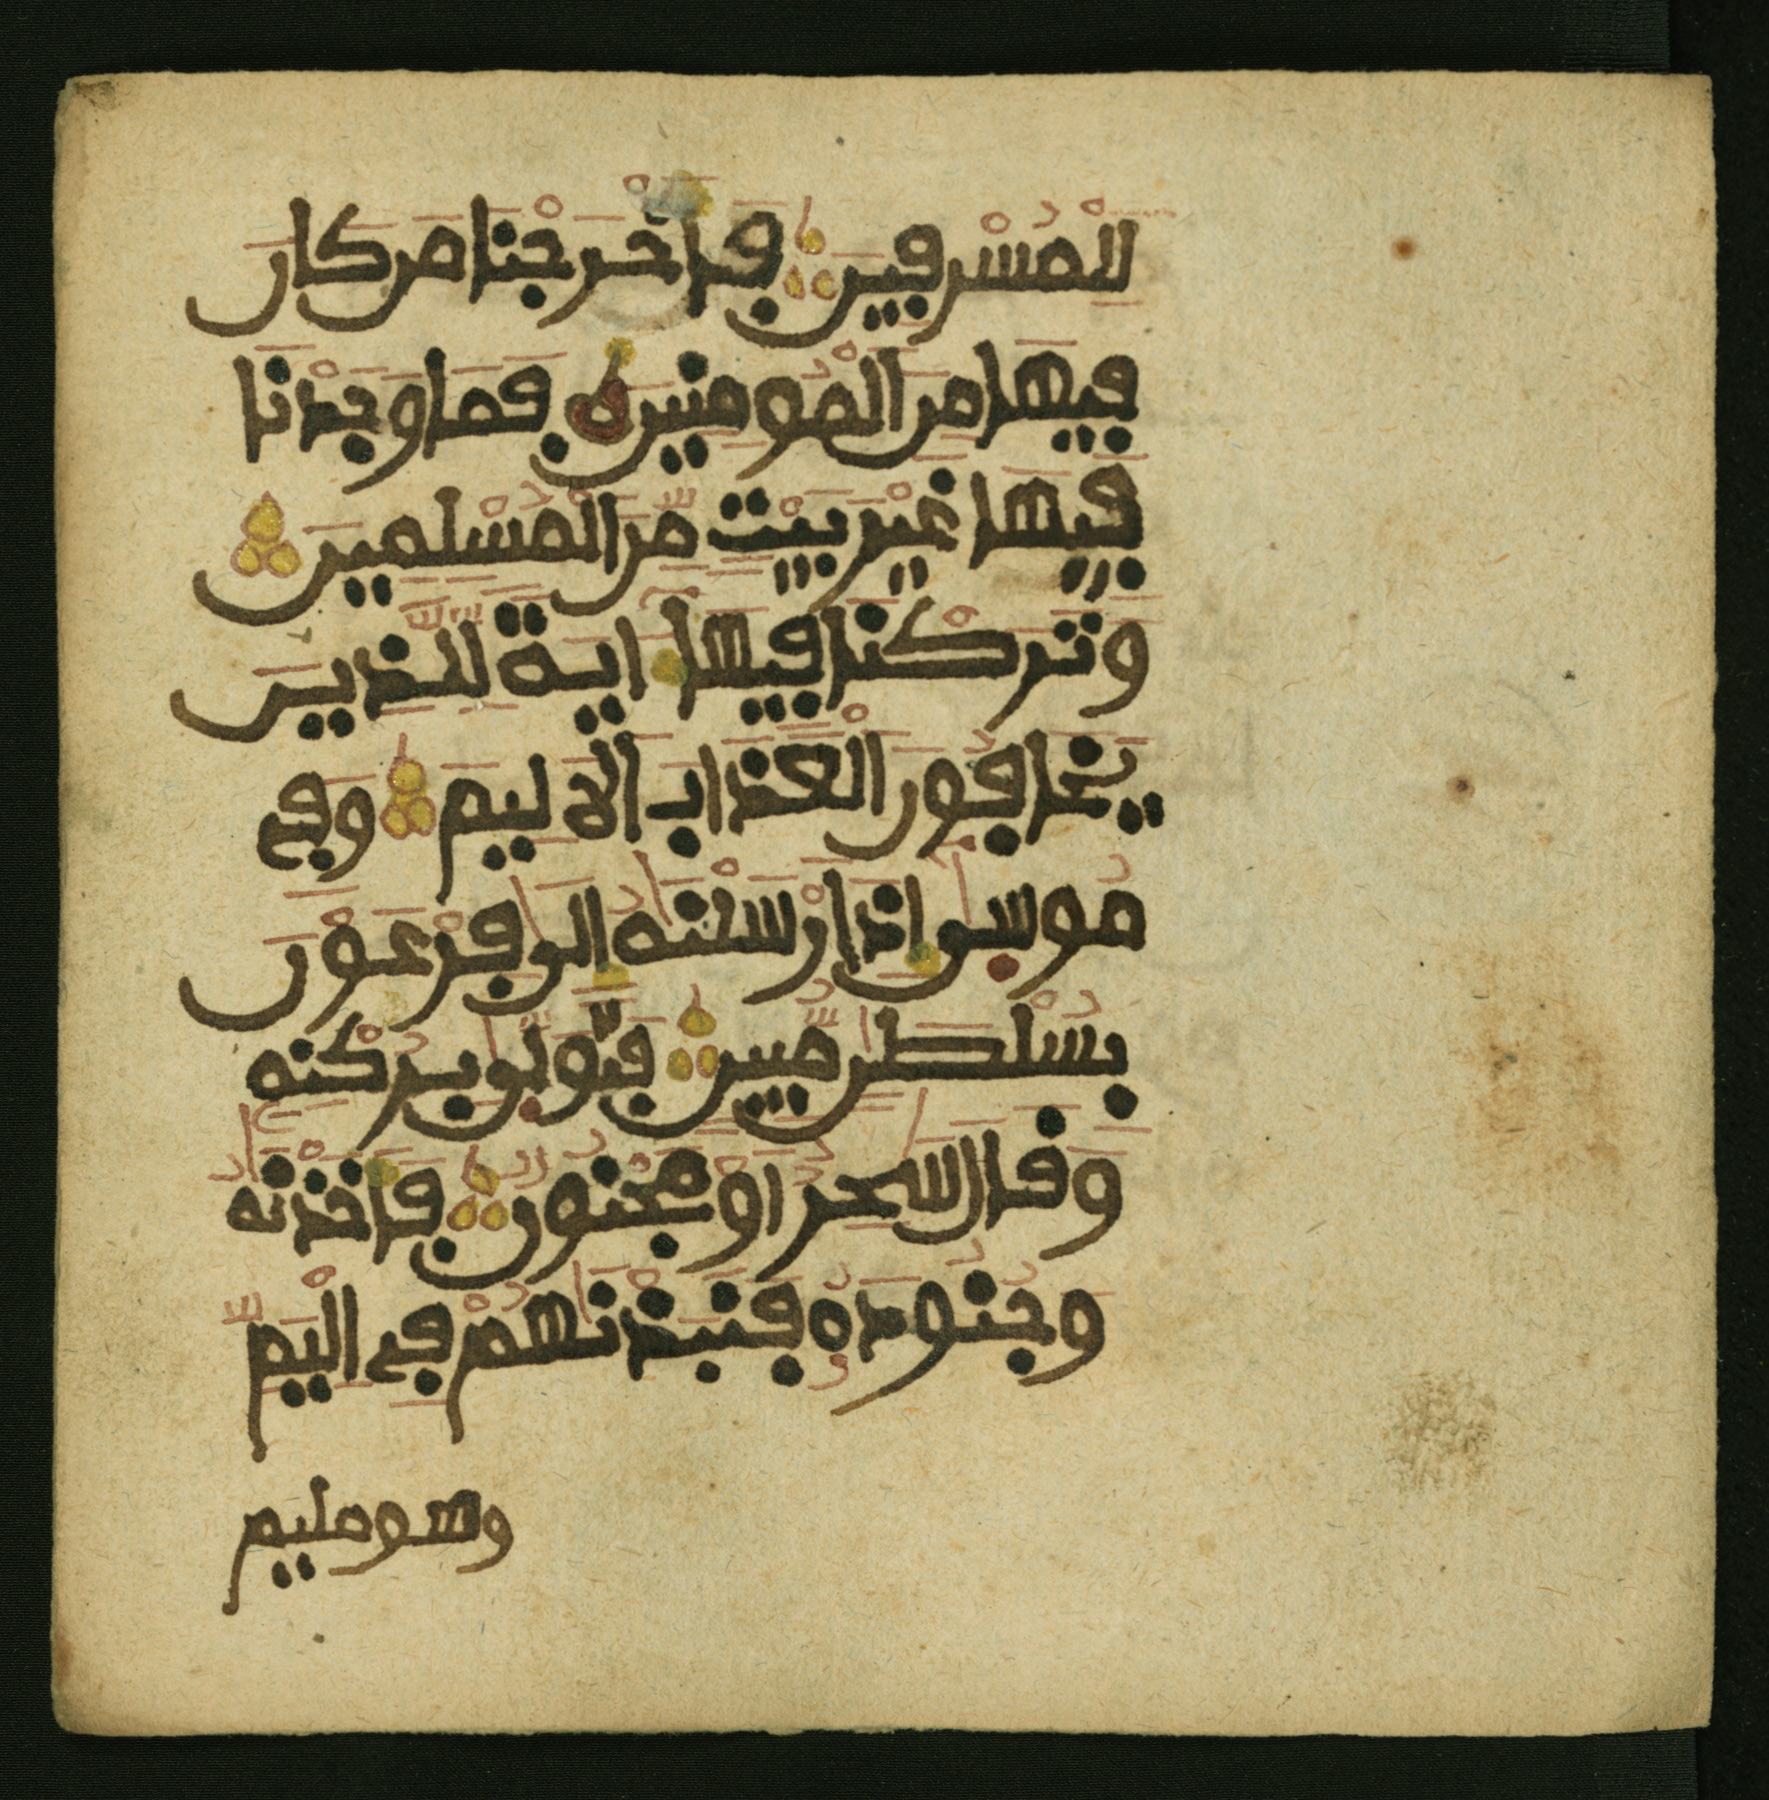 لِلْمُسْرِفِينَ فَأَخْرَجْنَا مَن كَانَ
فِيهَا مِنَ الْمُومِنِينَ فَمَا وَجَدْنَا
فِيهَا غَيْرَ بَيْتٍ مِّنَ الْمُسْلِمِينَ
وَتَرَكْنَا فِيهَا ءَايَةً لِّلَّذِينَ
يَخَافُونَ الْعَذَابَ الَالِيمَ وَفِي
مُوسَى إِذَ ارْسَلْنَٰهُ إِلَى فِرْعَوْنَ
بِسُلْطَٰنٍ مُّبِينٍ فَتَوَلَّى بِرُكْنِهِ
وَقَالَ سَٰحِرٌ اَوْ مَجْنُونٌ فَأَخَذْنَٰهُ
وَجُنُودَهُ فَنَبَذْنَٰهُمْ فِي الْيَمِّ
وهو مليم